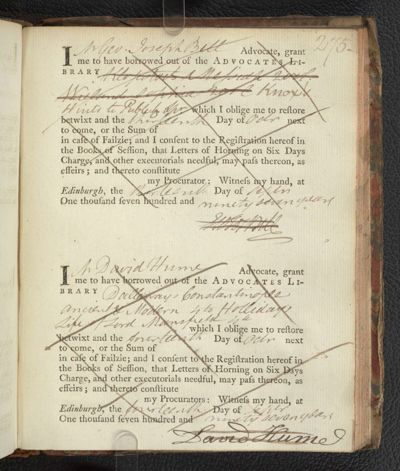 275
I Mr Geo. Joseph Bell Advocate, grant
me to have borrowed out of the ADVOCATES LI-
BRARY
Knox's
Hints to Publick &c which I oblige me to reſtore
betwixt and the thirteenth Day of Octr next
to come, or the Sum of
in caſe of Failzie; and I conſent to the Regiſtration hereof in
the Books of Seſſion, that Letters of Horning on Six Days
Charge, and other executorials needful, may paſs thereon, as
effeirs; and thereto conſtitute
my Procurator: Witneſs my hand, at
Edinburgh, the Day of
One thouſand ſeven hundred and ninety seven years
Geo Jos Bell
I Mr David Hume Advocate, grant
me to have borrowed out of the ADVOCATES LI-
BRARY Dallaways Constantinople
ancient & Modern 4to Hollidays
Life of Lord Mansfield 4to
which I oblige me to reſtore
betwixt and the thirteenth Day of Octr next
to come, or the Sum of
in caſe of Failzie; and I conſent to the Regiſtration hereof in
the Books of Seſſion, that Letters of Horning on Six Days
Charge, and other executorials needful, may paſs thereon, as
effeirs; and thereto conſtitute
my Procurators: Witneſs my hand, at
Edinburgh, the thirteenth Day of
One thouſand ſeven hundred and ninety seven years
David Hume